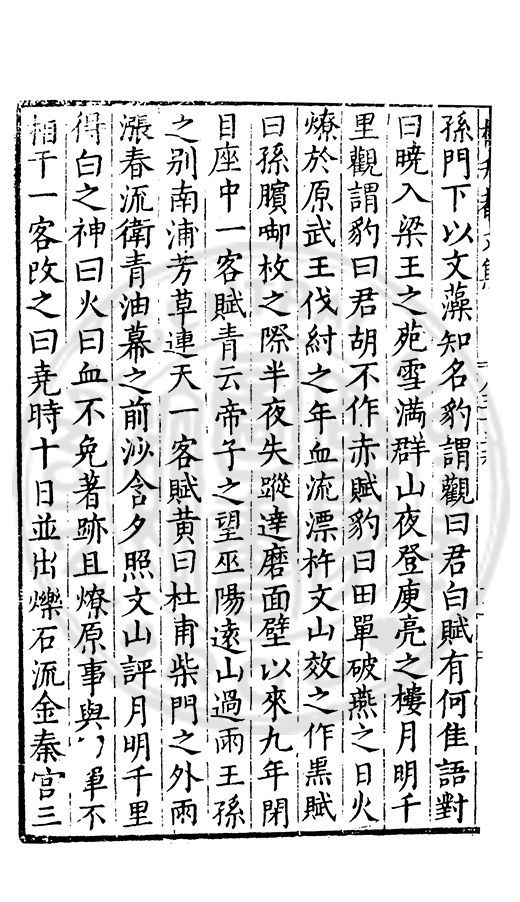 孫門下以文藻知名豹謂觀曰君白賦有何佳語對
曰曉入梁王之苑雪滿群山夜登庾亮之樓月明千
里觀謂豹曰君胡不作赤賦豹曰田單破燕之日火
燎於原武王伐紂之年血流漂杵文山效之作黒賦
曰孫臏啣枚之際半夜失蹤達磨面壁以來九年閉
目座中一客賦青云帝子之望巫陽遠山過雨王孫
之别南浦芳草連天一客賦黄曰杜甫柴門之外雨
漲春流衛青油幕之前沙含夕照文山評月明千里
得白之神曰火曰血不免著跡且燎原事與單不
相干一客改之曰尭時十日並出爍石流金秦宫三